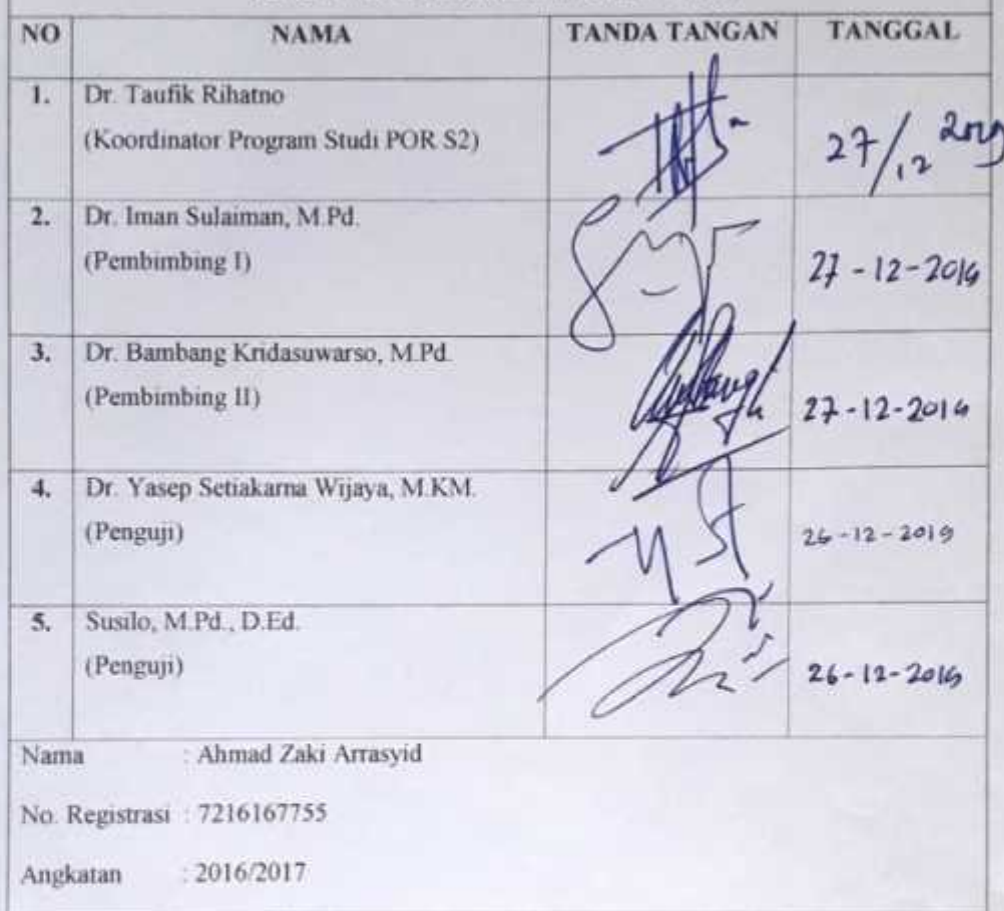 NO NAMA TANDA TANGAN TANGGAL
1. Dr. Taufik Rihatno
(Koordinator Program Studi POR S2)
27/12 2019
2. Dr. Iman Sulaiman, M.Pd.
(Pembimbing I)
27-12-2019
3. Dr. Bambang Kridasuwarso, M.Pd.
(Pembimbing II)
27-12-2019
4. Dr. Yasep Setiakarna Wijaya, M.KM.
(Penguji)
26-12-2019
5. Susilo, M.Pd., D.Ed.
(Penguji)
26-12-2019
Nama : Ahmad Zaki Arrasyid
No. Registrasi : 7216167755
Angkatan : 2016/2017